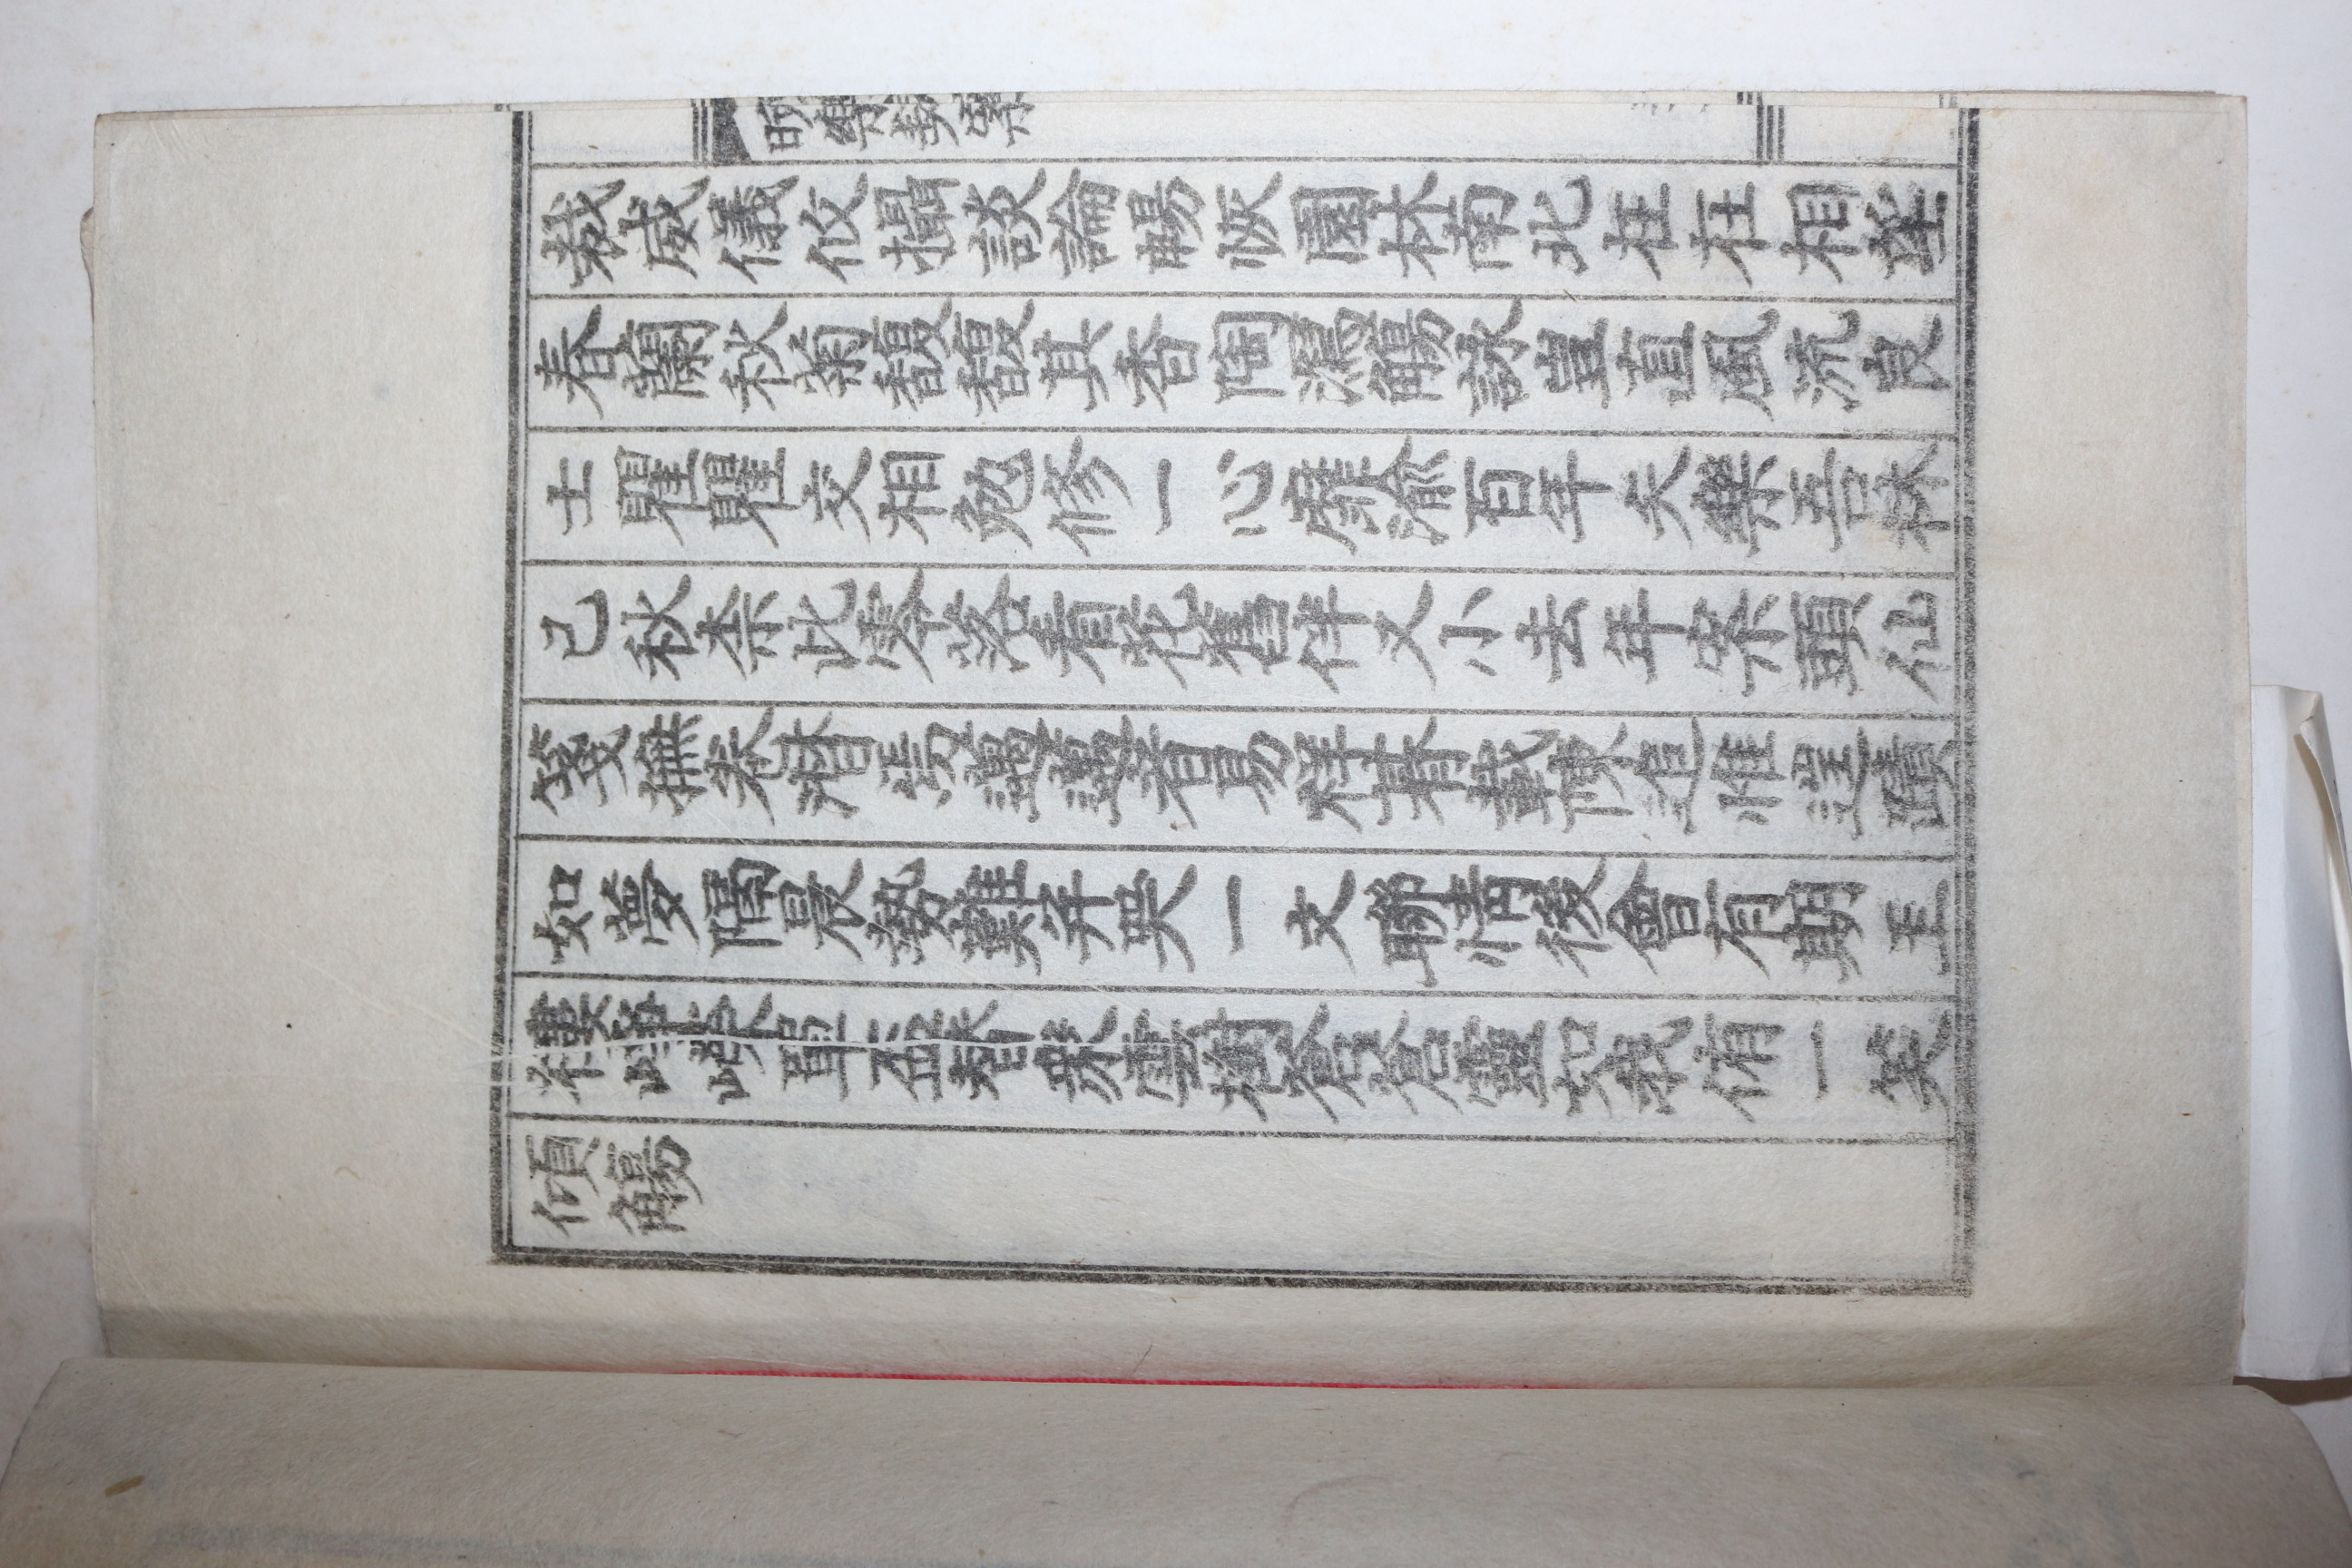 晩樂契案
裁威儀攸攝談論暢恢園林南北在在相望
春蘭秋菊馥馥其香陶瀉觴詠豈直風流良
士瞿瞿交相勉修一心靡渝百年矢樂吾林
己秋柰此零落看花舊伴又小去年案頭仙
箋撫卷潸焉邁邁者易祥朞載陳追惟逞蹟
如夢隔晨勢難并哭一文聯情後會有期玉
樓崢嶸單盃替衆雲樹蒼蒼靈如我侑一笑
傾觴